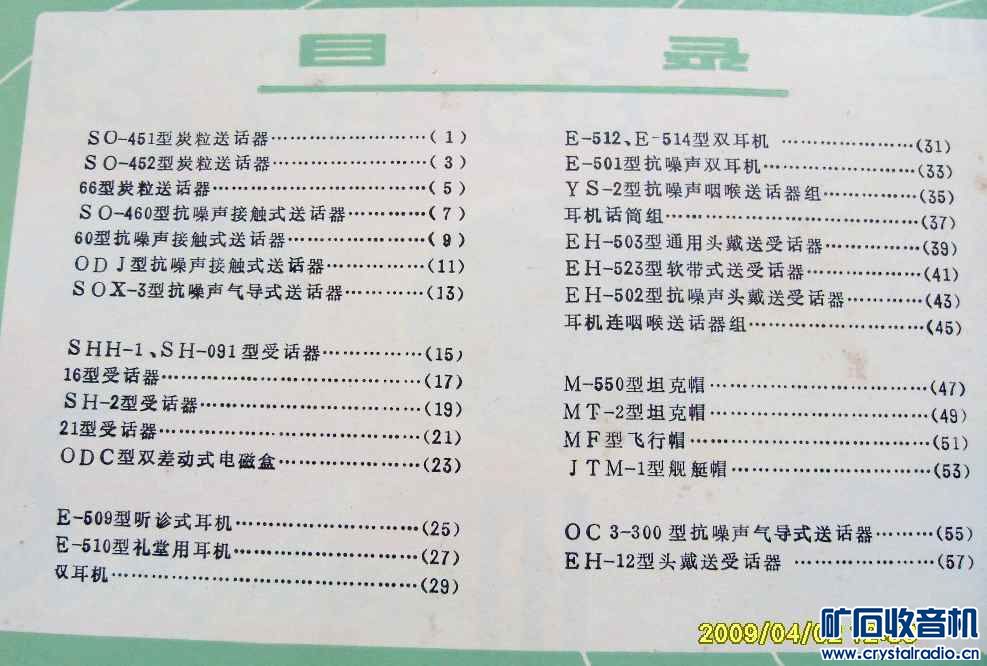 目 录
SO-451型炭粒送话器……………………(1)
SO-452型炭粒送话器……………………(3)
66型炭粒送话器……………………………(5)
SO-460型抗噪声接触式送话器…………(7)
60型抗噪声接触式送话器…………………(9)
ODJ型抗噪声接触式送话器……………(11)
SOX-3型抗噪声气导式送话器…………(13)
SHH-1、SH-091型受话器……………(15)
16型受话器…………………………………(17)
SH-2型受话器……………………………(19)
21型受话器…………………………………(21)
ODC型双差动式电磁盒…………………(23)
E-509型听诊式耳机………………………(25)
E-510型礼堂用耳机………………………(27)
双耳机………………………………………(29)
E-512、E-514型双耳机 ………………(31)
E-501型抗噪声双耳机……………………(33)
YS-2型抗噪声咽喉送话器组……………(35)
耳机话筒组…………………………………(37)
EH-503型通用头戴送受话器……………(39)
EH-523型软带式送受话器………………(41)
EH-502型抗噪声头戴送受话器…………(43)
耳机连咽喉送话器组………………………(45)
M-550型坦克帽……………………………(47)
MT-2型坦克帽……………………………(49)
MF型飞行帽………………………………(51)
JTM-1型舰艇帽…………………………(53)
OC3-300型抗噪声气导式送话器………(55)
EH-12型头戴送受话器 …………………(57)
2009/04/02
矿石收音机
www.crystalradio.cn